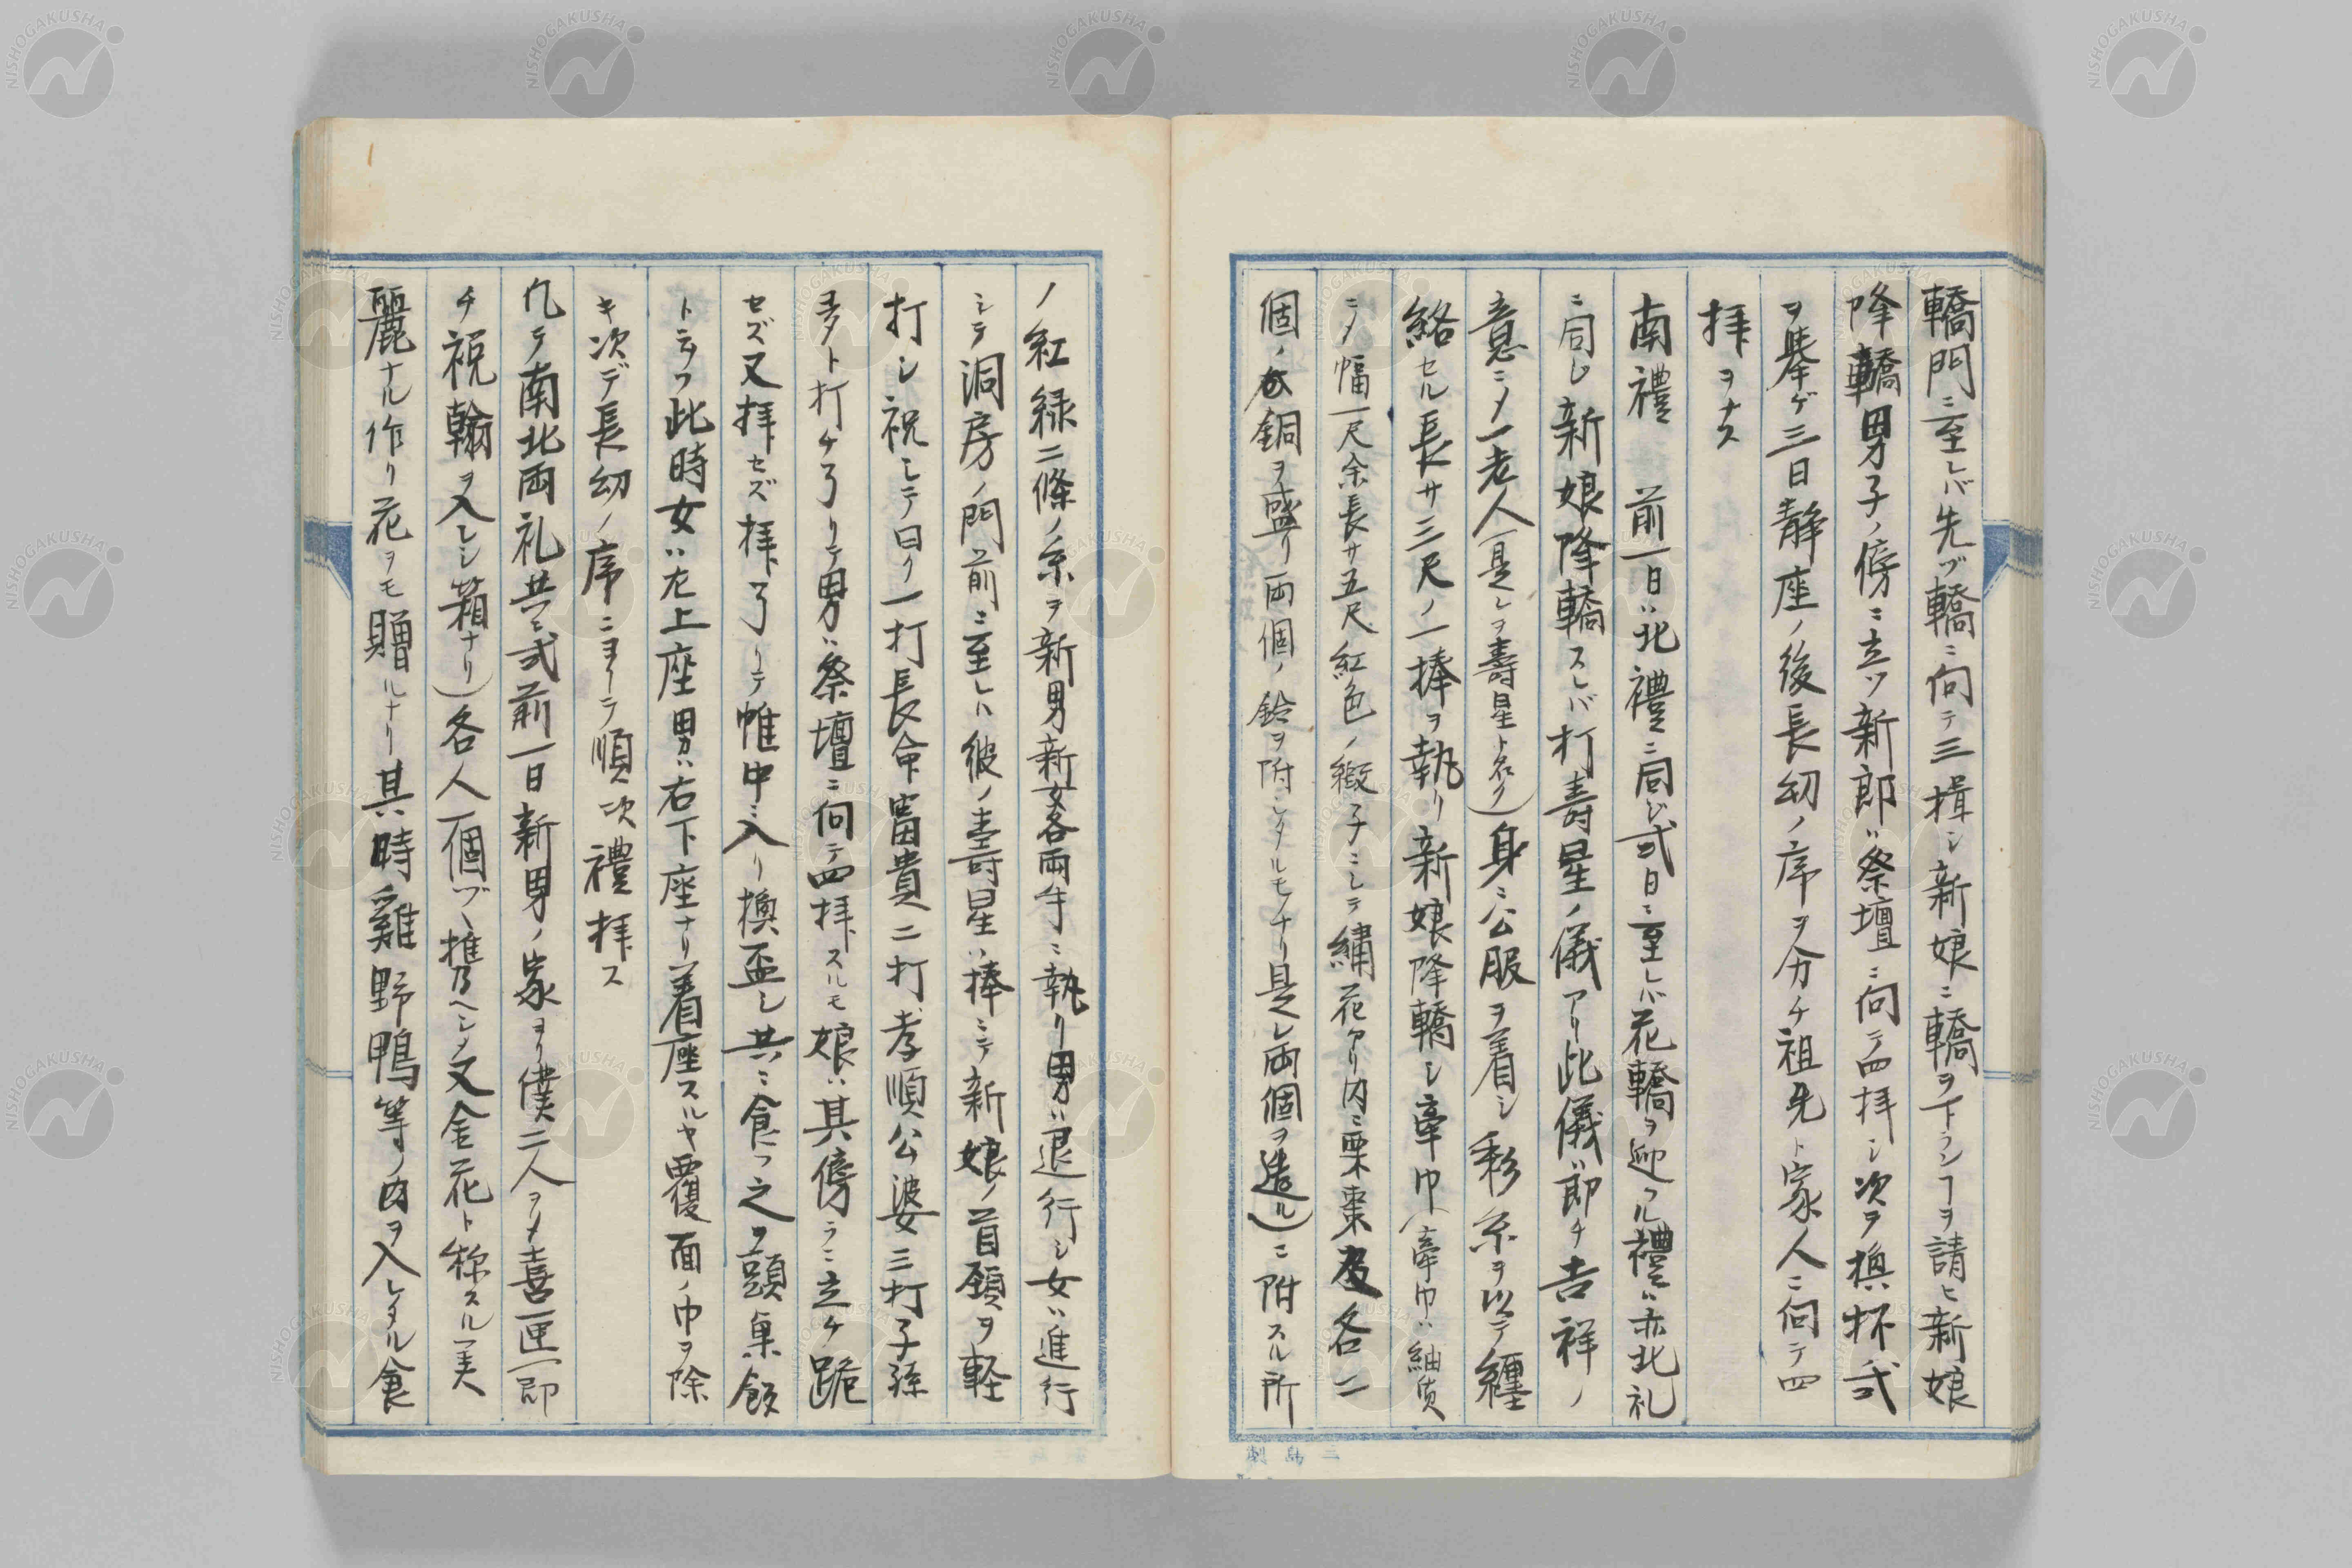 轎門ニ至レバ先ヅ轎ニ向テ三揖シ新娘ニ轎ヲ下ランヿヲ請ヒ新娘
降轎男子ノ傍ニ立ツ新郎ハ祭壇ニ向テ四拝シ次ヲ換杯式
ヲ挙ゲ三日静座ノ後長幼ノ序ヲ分チ祖先ト家人ニ向テ四
拝ヲナス
南禮 前一日ハ北禮ニ同ジ式日ニ至レバ花轎ヲ迎フル禮ハ亦北礼
ニ同じ新娘降轎スレバ打壽星ノ儀アリ此儀ハ即チ吉祥ノ
意ニメ一老人(是レヲ壽星ト名ク)身ニ公服ヲ着シ彩糸ヲ以テ纏
絡セル長サ三尺ノ一捧ヲ執リ新娘降轎シ牽巾(牽巾ハ紬質
ニメ幅一尺余長サ五尺紅色ノ緞子ニシテ繍花アリ内ニ栗棗及各二
個ノ銅ヲ盛リ両個ノ鈴ヲ附シタルモノナリ是レ両個ヲ造ル)ニ附スル所
ノ紅緑二條ノ糸ヲ新男新女各両手ニ執リ男ハ退行シ女ハ進行
シテ洞房ノ門前ニ至レハ彼ノ壽星ハ捧ニテ新娘ノ首頚ヲ軽
打シ祝シテ曰ク一打長命富貴二打孝順公婆三打子孫
多ト打チ了リテ男ハ祭壇ニ向テ四拝スルモ娘ハ其傍ラニ立ケ跪
セズ又拝セズ拝了リテ帷中ニ入リ換盃シ共ニ食フ之ヲ頭菓飯
ト云フ此時女ハ左上座男ハ右下座ナリ着座スルヤ覆面ノ巾ヲ除
キ次デ長幼ノ序ニヨリテ順次禮拝ス
凡テ南北両礼共ニ式前一日新男ノ家ヨリ僕二人ヲメ喜匣(即
チ祝翰ヲ入レシ箱ナリ)各人一個ヅヽ携ヘシメ又金花ト称スル美
麗ナル作リ花ヲモ贈ルナリ其時雞野鴨等ノ肉ヲ入レタル食
三島製